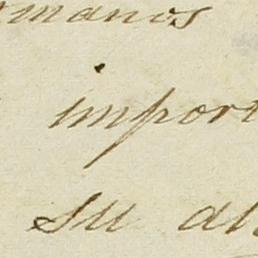 rmanos
import
su al